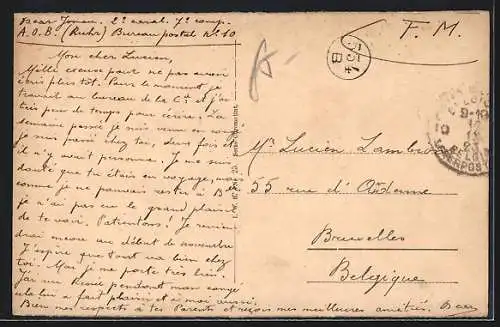 Bear Joman. 2e carab. 7e comp.
A.O.B. (Ruhr) Bureau postal No 10
F. M.
Mon cher Lucien,
Mille excuses pour ne pas avoir
écris plus tôt. Pour le moment je
travail au bureau de la Cie et j'ai
très peu de temps pour écrire. La
semaine passée je suis venu en congé
je suis passé chez toi, deux fois et
il n'y avait personne. Je me suis
douté que tu étais en voyage, mais
comme je ne pouvais rester à Bxl
je n'ai pas eu le grand plaisir
de te voir. Patientons! Je revien-
drai encore au début de novembre
J'espère que tout va bien chez
toi. Moi je me porte très bien.
J'ai vu René pendant mon congé
cela lui a fait plaisir et à moi aussi.
Bien mes respects à tes Parents et reçois mes meilleures amitiés. Bear
Mr Lucien Lambion
55 rue d'Ardenne
Bruxelles
Belgique